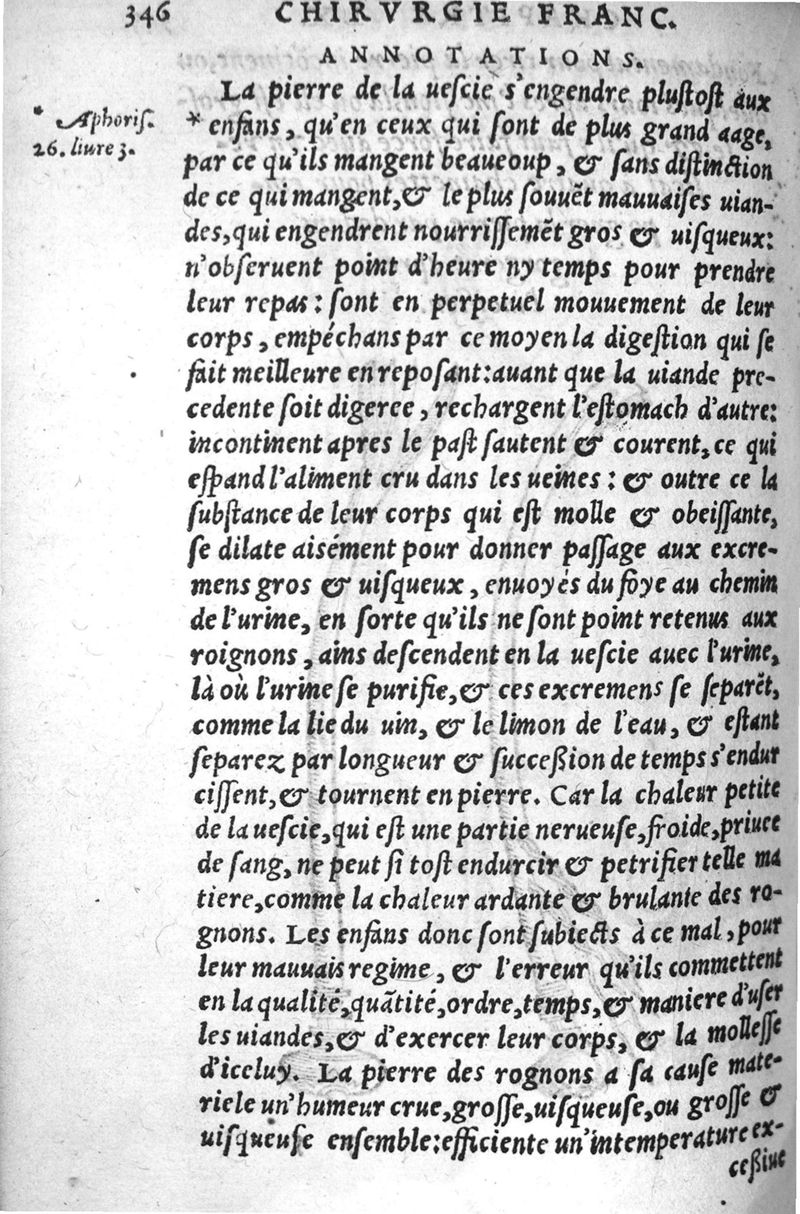 346 CHIRVRGIE FRANC.
ANNOTATIONS.
La pierre de la ueſcie s'engendre pluſtoſt aux
* Aphoriſ.
26. liure 3.
* enfans, qu'en ceux qui ſont de plus grand aage,
par ce qu'ils mangent beaucoup, & ſans diſtinction
de ce qui mangent, & le plus ſouuẽt mauuaiſes uian-
des, qui engendrent nourriſſemẽt gros & uiſqueux:
n'obſeruent point d'heure ny temps pour prendre
leur repas: ſont en perpetuel mouuement de leur
corps, empéchans par ce moyen la digeſtion qui ſe
fait meilleure en repoſant: auant que la uiande pre-
cedente ſoit digeree, rechargent l'eſtomach d'autre:
incontinent apres le paſt ſautent & courent, ce qui
eſpand l'aliment cru dans les ueines: & outre ce la
ſubſtance de leur corps qui eſt molle & obeiſſante,
ſe dilate aisément pour donner paſſage aux excre-
mens gros & uiſqueux, enuoyés du foye au chemin
de l'urine, en ſorte qu'ils ne ſont point retenus aux
roignons, ains deſcendent en la ueſcie auec l'urine,
là où l'urine ſe purifie, & ces excremens ſe ſeparẽt,
comme la lie du uin, & le limon de l'eau, & eſtant
ſeparez par longueur & ſucceßion de temps s'endur
ciſſent, & tournent en pierre. Car la chaleur petite
de la ueſcie, qui eſt une partie nerueuſe, froide, priuee
de ſang, ne peut ſi toſt endurcir & petrifier telle ma
tiere, comme la chaleur ardante & brulante des ro-
gnons. Les enfans donc ſont ſubiects à ce mal, pour
leur mauuais regime, & l'erreur qu'ils commettent
en la qualité, quãtité, ordre, temps, & maniere d'uſer
les uiandes, & d'exercer leur corps, & la molleſſe
d'iceluy. La pierre des rognons a ſa cauſe mate-
riele un'humeur crue, groſſe, uiſqueuſe, ou groſſe &
uiſqueuſe enſemble: efficiente un'intemperature ex-
ceßiue